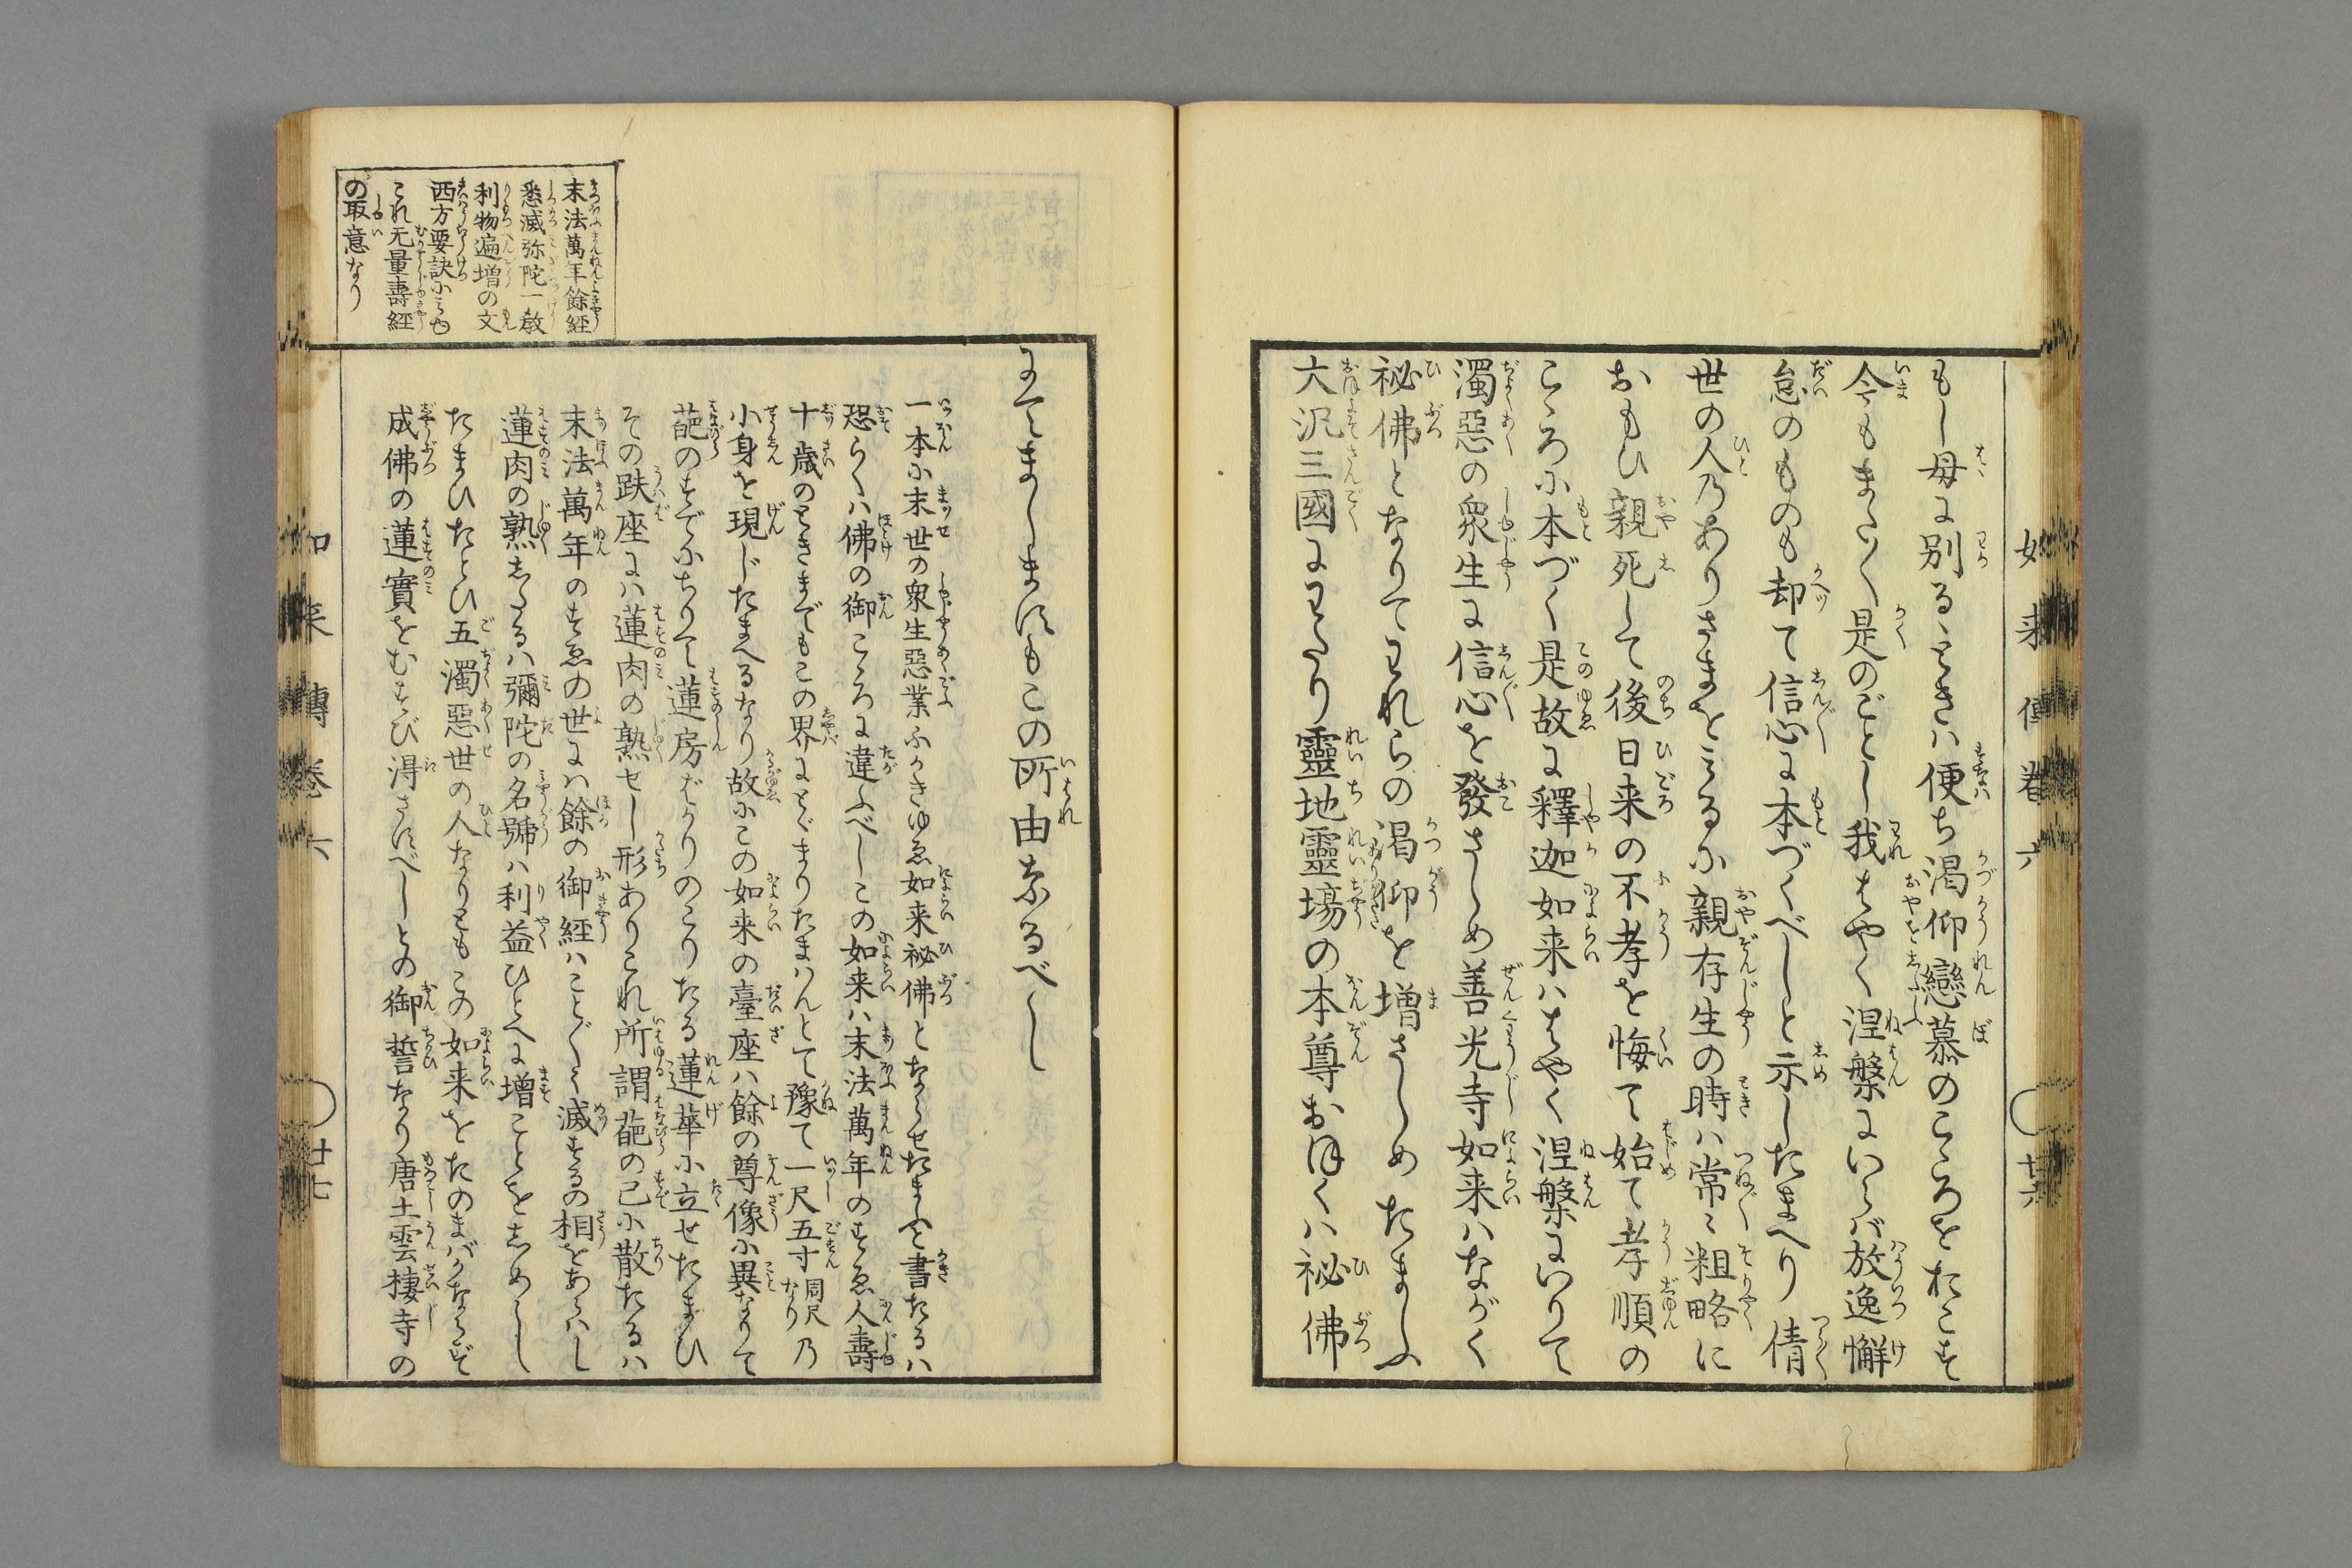 もし母に別るゝときハ便ち渇仰戀慕のこゝろをおこす
今もまたかく是のごとし我はやく涅槃にいらバ放逸懈
怠のものも却て信心に本づくべしと示したまへり倩
世の人乃ありさまをミるに親存生の時ハ常〻粗略に
おもひ親死して後日来の不孝を悔て始て孝順の
こゝろに本づく是故に釋迦如来ハはやく涅槃にいりて
濁惡の衆生に信心を發さしめ善光寺如来ハながく
祕佛となりてわれらの渇仰を増さしめたまふ
大凢三國にわたり靈地靈塲の本尊おほくハ祕佛
如来傳巻六
廿六
にてましますもこの所由なるべし
一本に末世の衆生惡業ふかきゆゑ如来祕佛とならせたまふと書たるハ
恐らくハ佛の御こゝろに違ふべしこの如来ハ末法萬年のすゑ人壽
十歳のときまでもこの界にとゞまりたまハんとて豫て一尺五寸周尺なり乃
小身を現じたまへるなり故にこの如来の臺座ハ餘の尊像に異なりて
葩のすでにちりて蓮房ばかりのこりたる蓮華に立せたまひ
その趺座にハ蓮肉の熟せし形ありこれ所謂葩の已に散たるハ
末法萬年のすゑの世にハ餘の御経ハこと〴〵く滅するの相をあらハし
蓮肉の熟したるハ彌陀の名號ハ利益ひとへに増ことをしめらし
たまひたとひ五濁惡世の人なりともこの如来をたのまバかならず
成佛の蓮實をむすび得さすべしとの御誓なり唐土雲棲寺の
末法萬年餘経
悉滅弥陀一教
利物遍増の文
西方要訣にミゆ
これ无量壽経
の取意なり
如来傳巻六
廿七